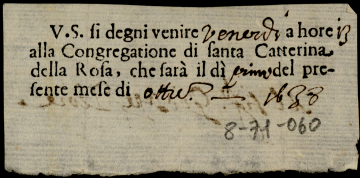 V.S. si degni venire venerdi a hore 13
alla Congregatione di santa Catterina
della Rosa, che sarà il dì primo del pre-
sente mese di ottre. 1638
8-71-060